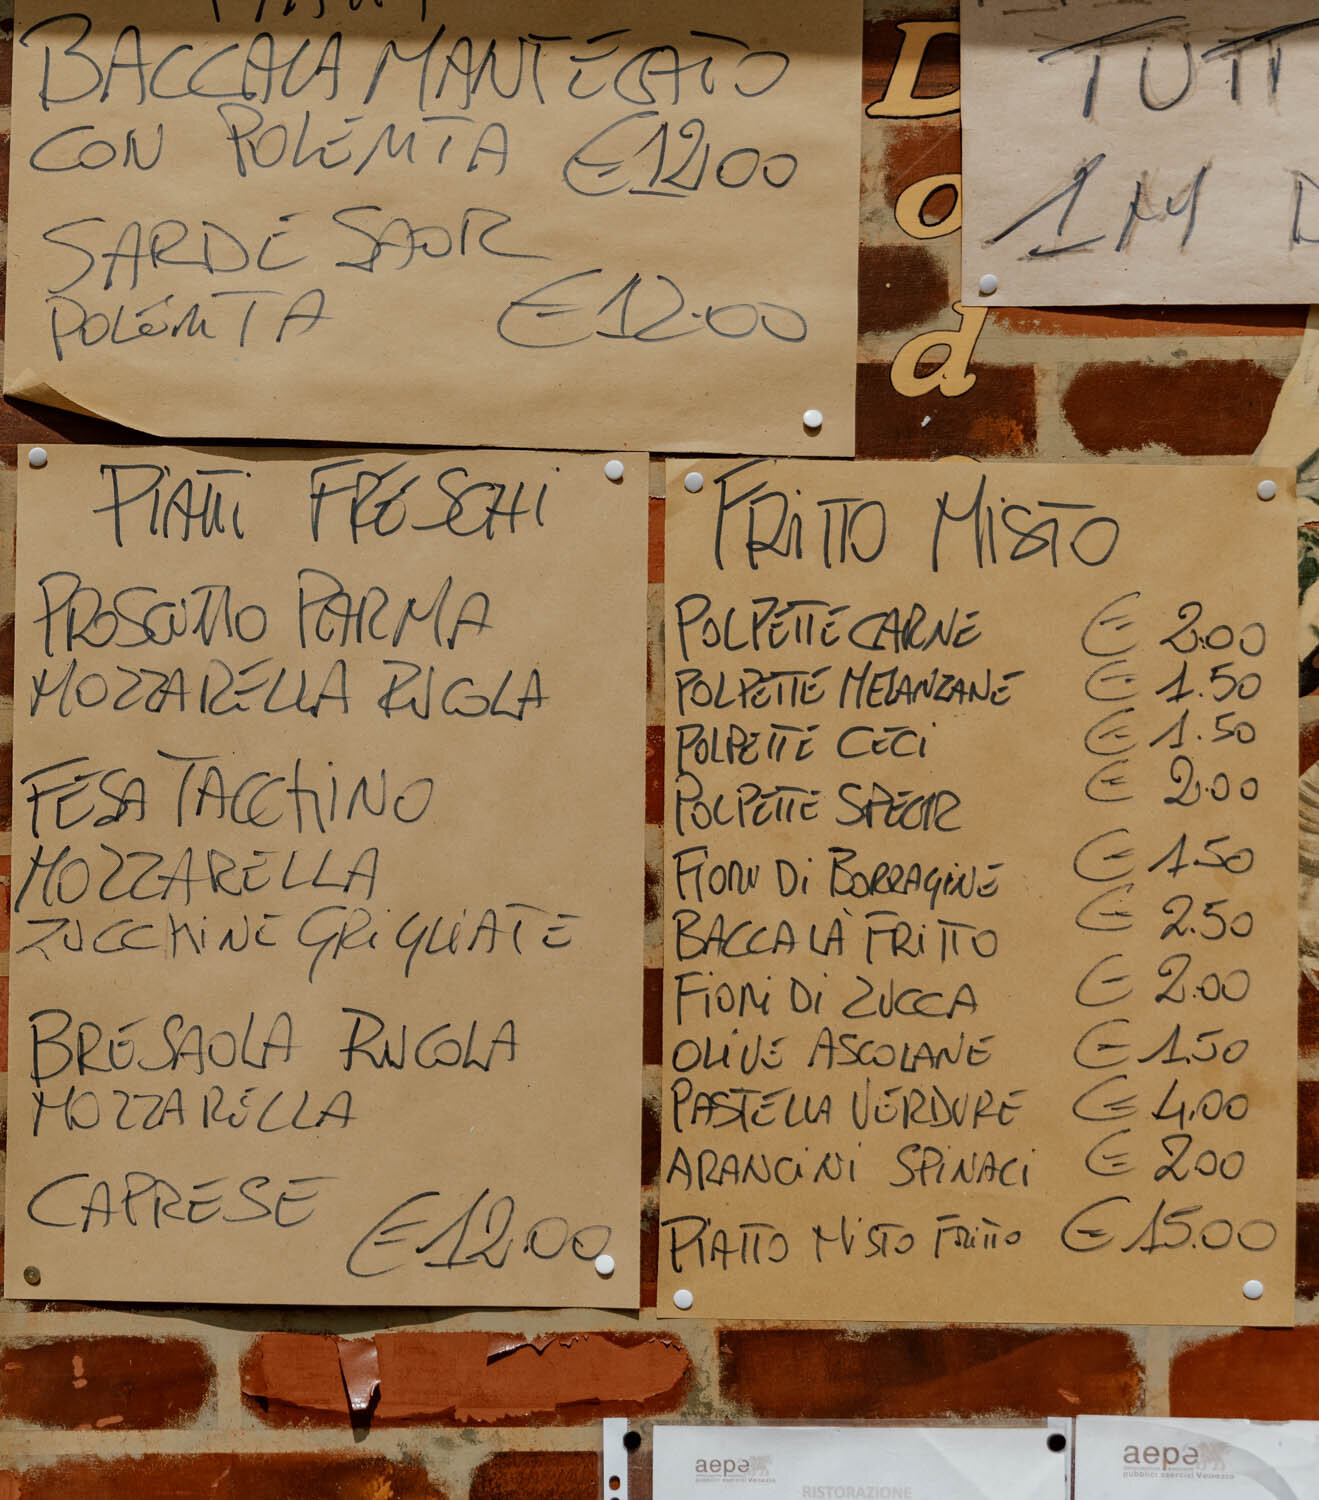 BACCALA MANTECATO
CON POLEMTA €12,00
SARDE SAOR
POLEMTA €12.00
D
o
d
TUTTI
1M
PIATTI FRESCHI
PROSCIUTTO PARMA
MOZZARELLA RUCOLA
FESA TACCHINO
MOZZARELLA
ZUCCHINE GRIGLIATE
BRESAOLA RUCOLA
MOZZARELLA
CAPRESE €12.00
FRITTO MISTO
POLPETTE CARNE € 2.00
POLPETTE MELANZANE € 1.50
POLPETTE CECI € 1.50
POLPETTE SPECK € 2.00
FIORI DI BORRAGINE € 1.50
BACCALÀ FRITTO € 2.50
FIORI DI ZUCCA € 2.00
OLIVE ASCOLANE € 1.50
PASTELLA VERDURE € 4.00
ARANCINI SPINACI € 2.00
PIATTO MISTO FRITTO € 15.00
aepe
pubblici esercizi Venezia
RISTORAZIONE
aepe
pubblici esercizi Venezia